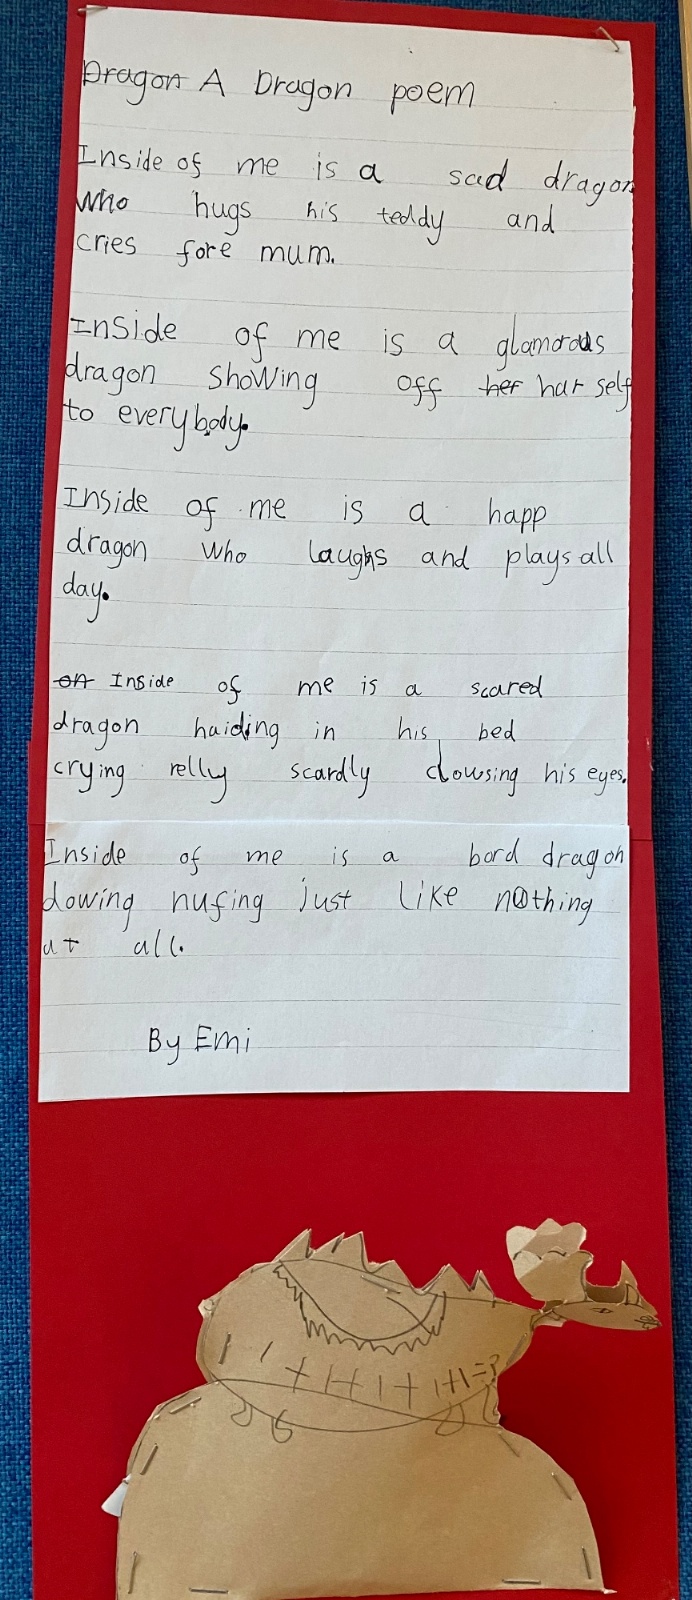 Dragon A Dragon poem
Inside of me is a sad dragon
who hugs his teddy and
cries fore mum.
Inside of me is a glamorous
dragon showing off her har self
to everybody.
Inside of me is a happ
dragon who laughs and plays all
day.
on Inside of me is a scared
dragon haiding in his bed
crying relly scardly clowsing his eyes.
Inside of me is a bord dragon
dowing nufing just like nothing
at all.
By Emi
1 1 + 1+1+ 1+1=?